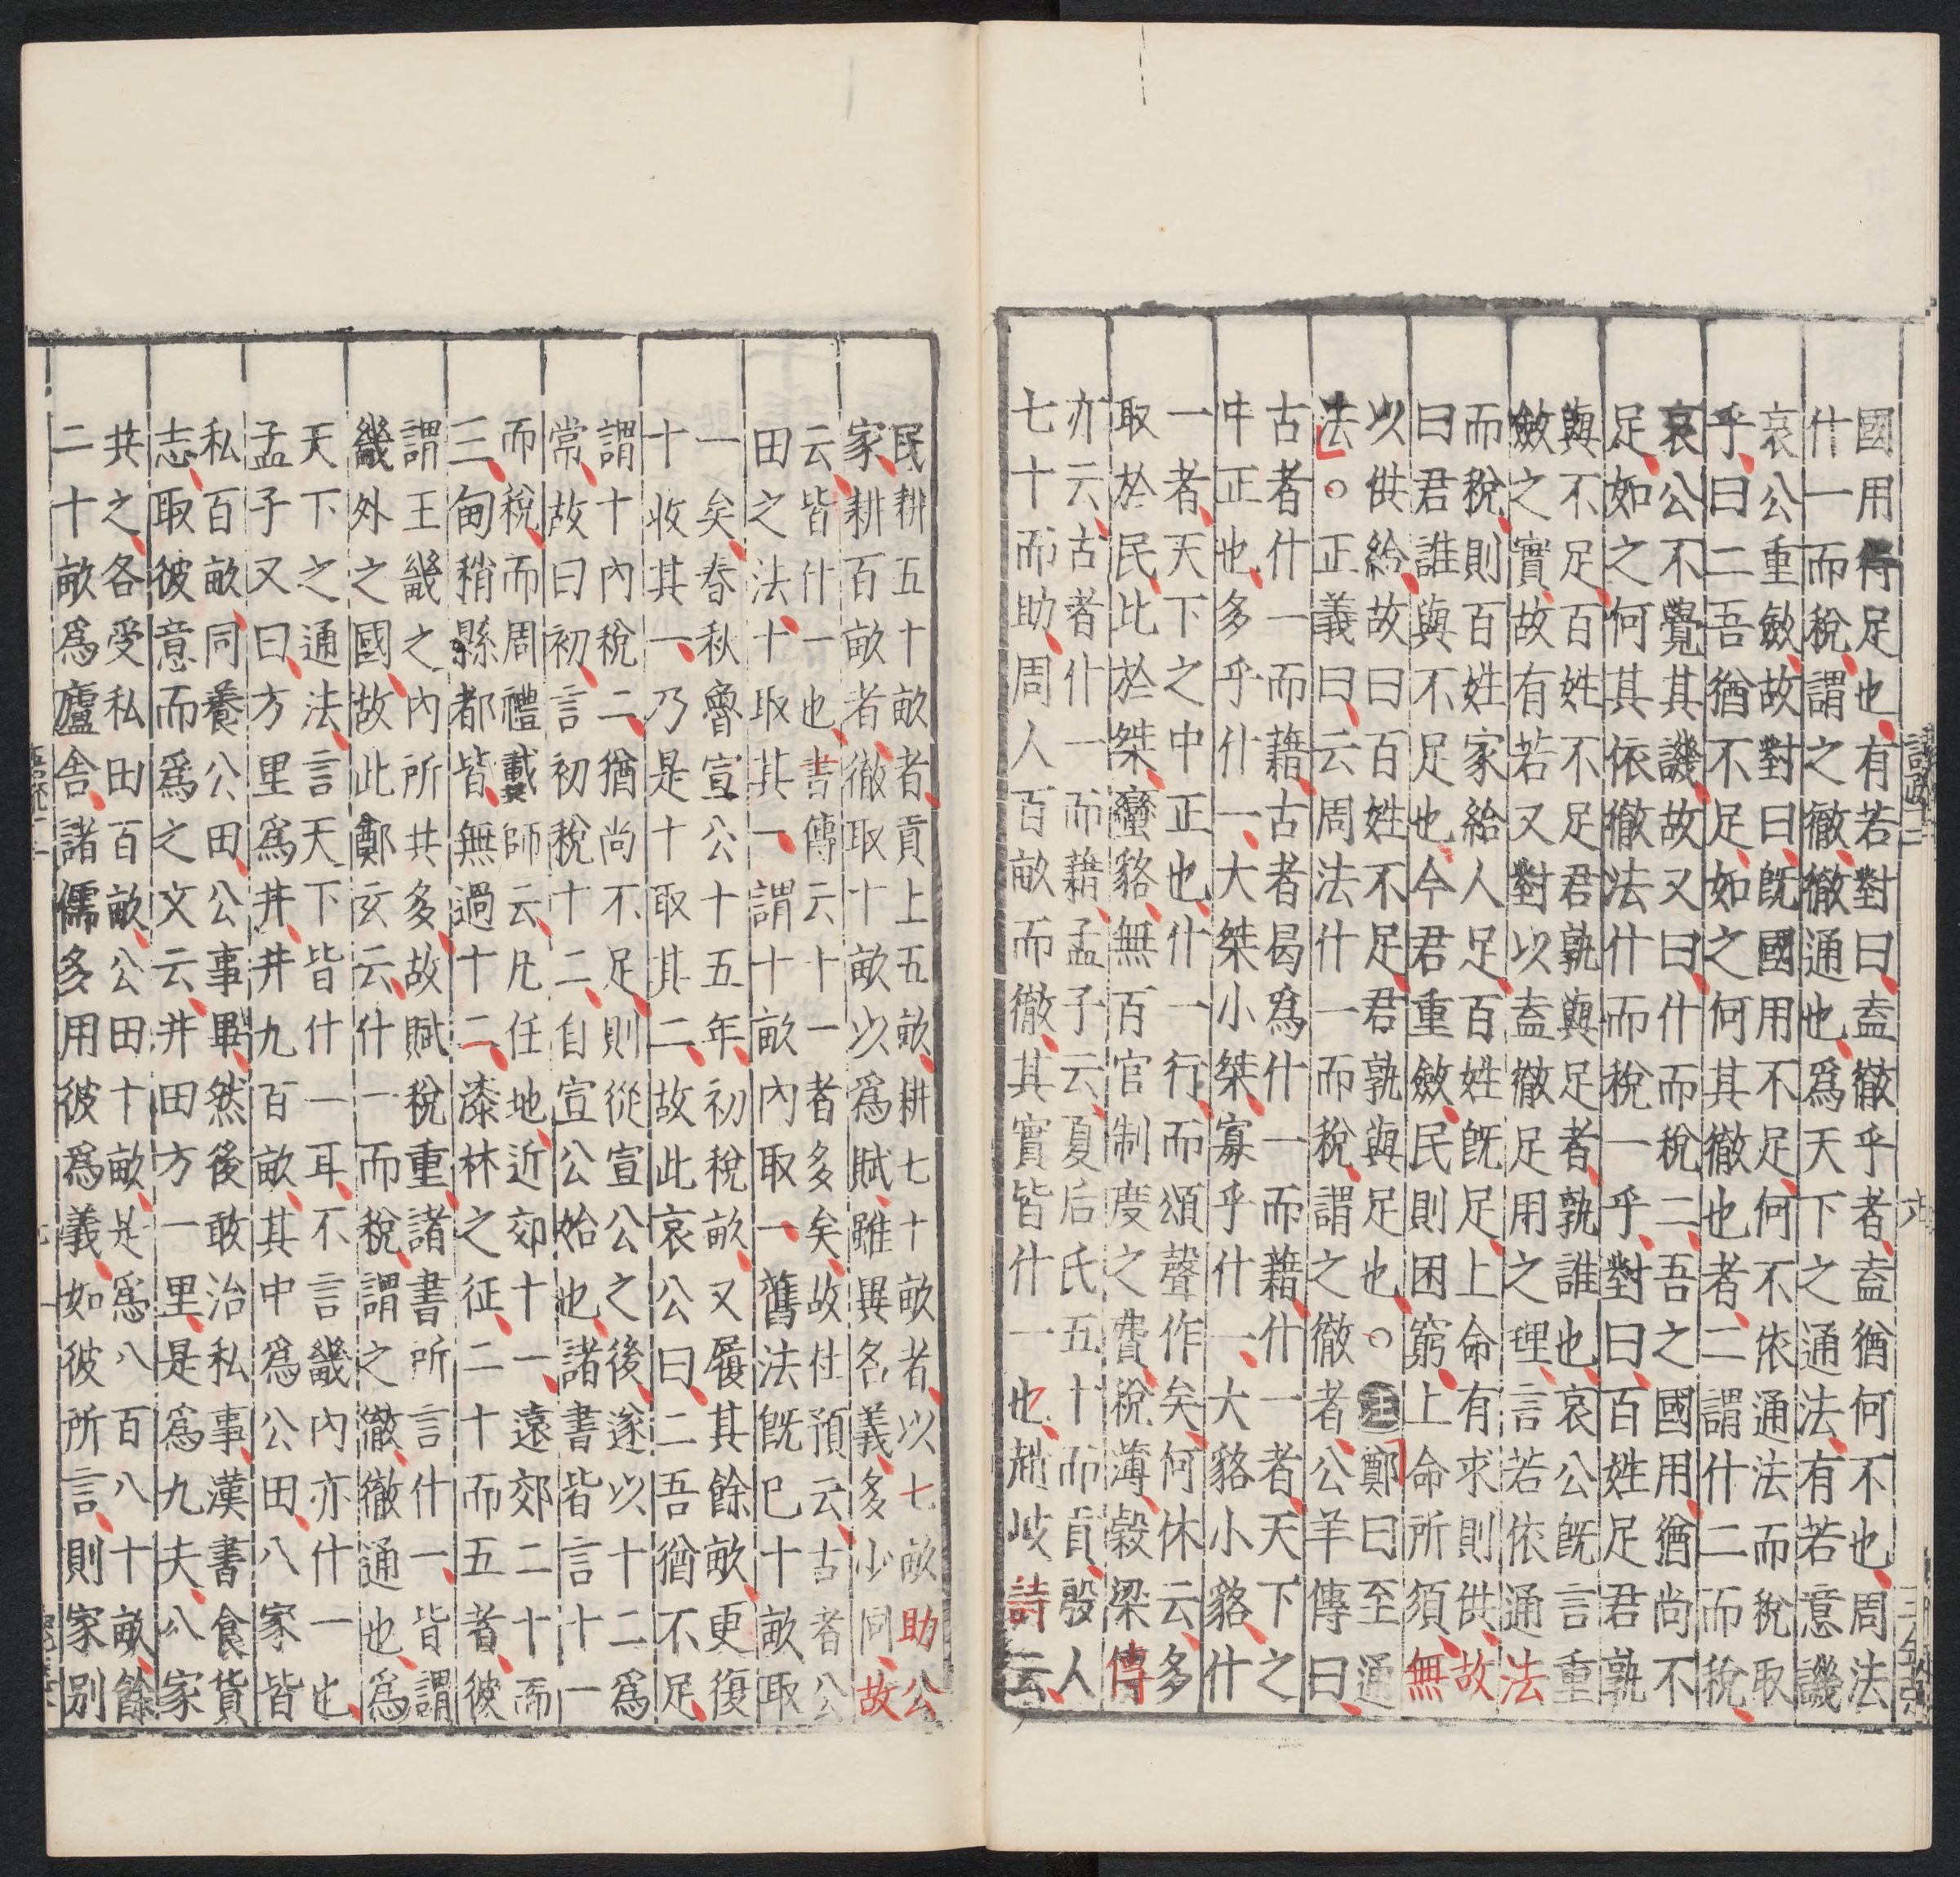 國用得足也有若對曰盍徹乎者盍猶何不也周法
什一而稅謂之徹徹通也爲天下之通法有若意譏
哀公重斂故對曰旣國用不足何不依通法而稅取
乎曰二吾猶不足如之何其徹也者二謂什二而稅
哀公不覺其譏故又曰什而稅二吾之國用猶尚不
足如之何其依徹法什而稅一乎對曰百姓足君孰
與不足百姓不足君孰與足者孰誰也哀公旣言重
斂之實故有若又對以盍徹足用之理言若依通法
而稅則百姓家給人足百姓旣足上命有求則供故
曰君誰與不足也今君重斂民則困窮上命所須無
以供給故曰百姓不足君孰與足也○注鄭曰至通
法○正義曰云周法什一而稅謂之徹者公羊傳曰
古者什一而藉古者曷爲什一而藉什一者天下之
中正也多乎什一大桀小桀寡乎什一大貉小貉什
一者天下之中正也什一行而頌聲作矣何休云多
取於民比於桀蠻貉無百官制度之費稅薄穀梁傳
亦云古者什一而藉孟子云夏后氏五十而貢殷人
七十而助周人百畝而徹其實皆什一也趙岐詩云
民耕五十畝者貢上五畝耕七十畝者以七畝助公
家耕百畝者徹取十畝以爲賦雖異名義多少同故
云皆什一也書傳云十一者多矣故杜預云古者公
田之法十取其一謂十畝內取一舊法旣已十畝取
一矣春秋魯宣公十五年初稅畝又履其餘畝更復
十收其一乃是十取其二故此哀公曰二吾猶不足
謂十內稅二猶尚不足則從宣公之後遂以十二爲
常故曰初言初稅十二自宣公始也諸書皆言十一
而稅而周禮載其師云凡任地近郊十一遠郊二十而
三甸稍縣都皆無過十二漆林之征二十而五者彼
謂王畿之內所共多故賦稅重諸書所言什一皆謂
畿外之國故此鄭玄云什一而稅謂之徹徹通也爲
天下之通法言天下皆什一耳不言畿內亦什一也
孟子又曰方里爲井井九百畝其中爲公田八家皆
私百畝同養公田公事畢然後敢治私事漢書食貨
志取彼意而爲之文云井田方一里是爲九夫八家
共之各受私田百畝公田十畝是爲八百八十畝餘
二十畝爲廬舍諸儒多用彼爲義如彼所言則家別